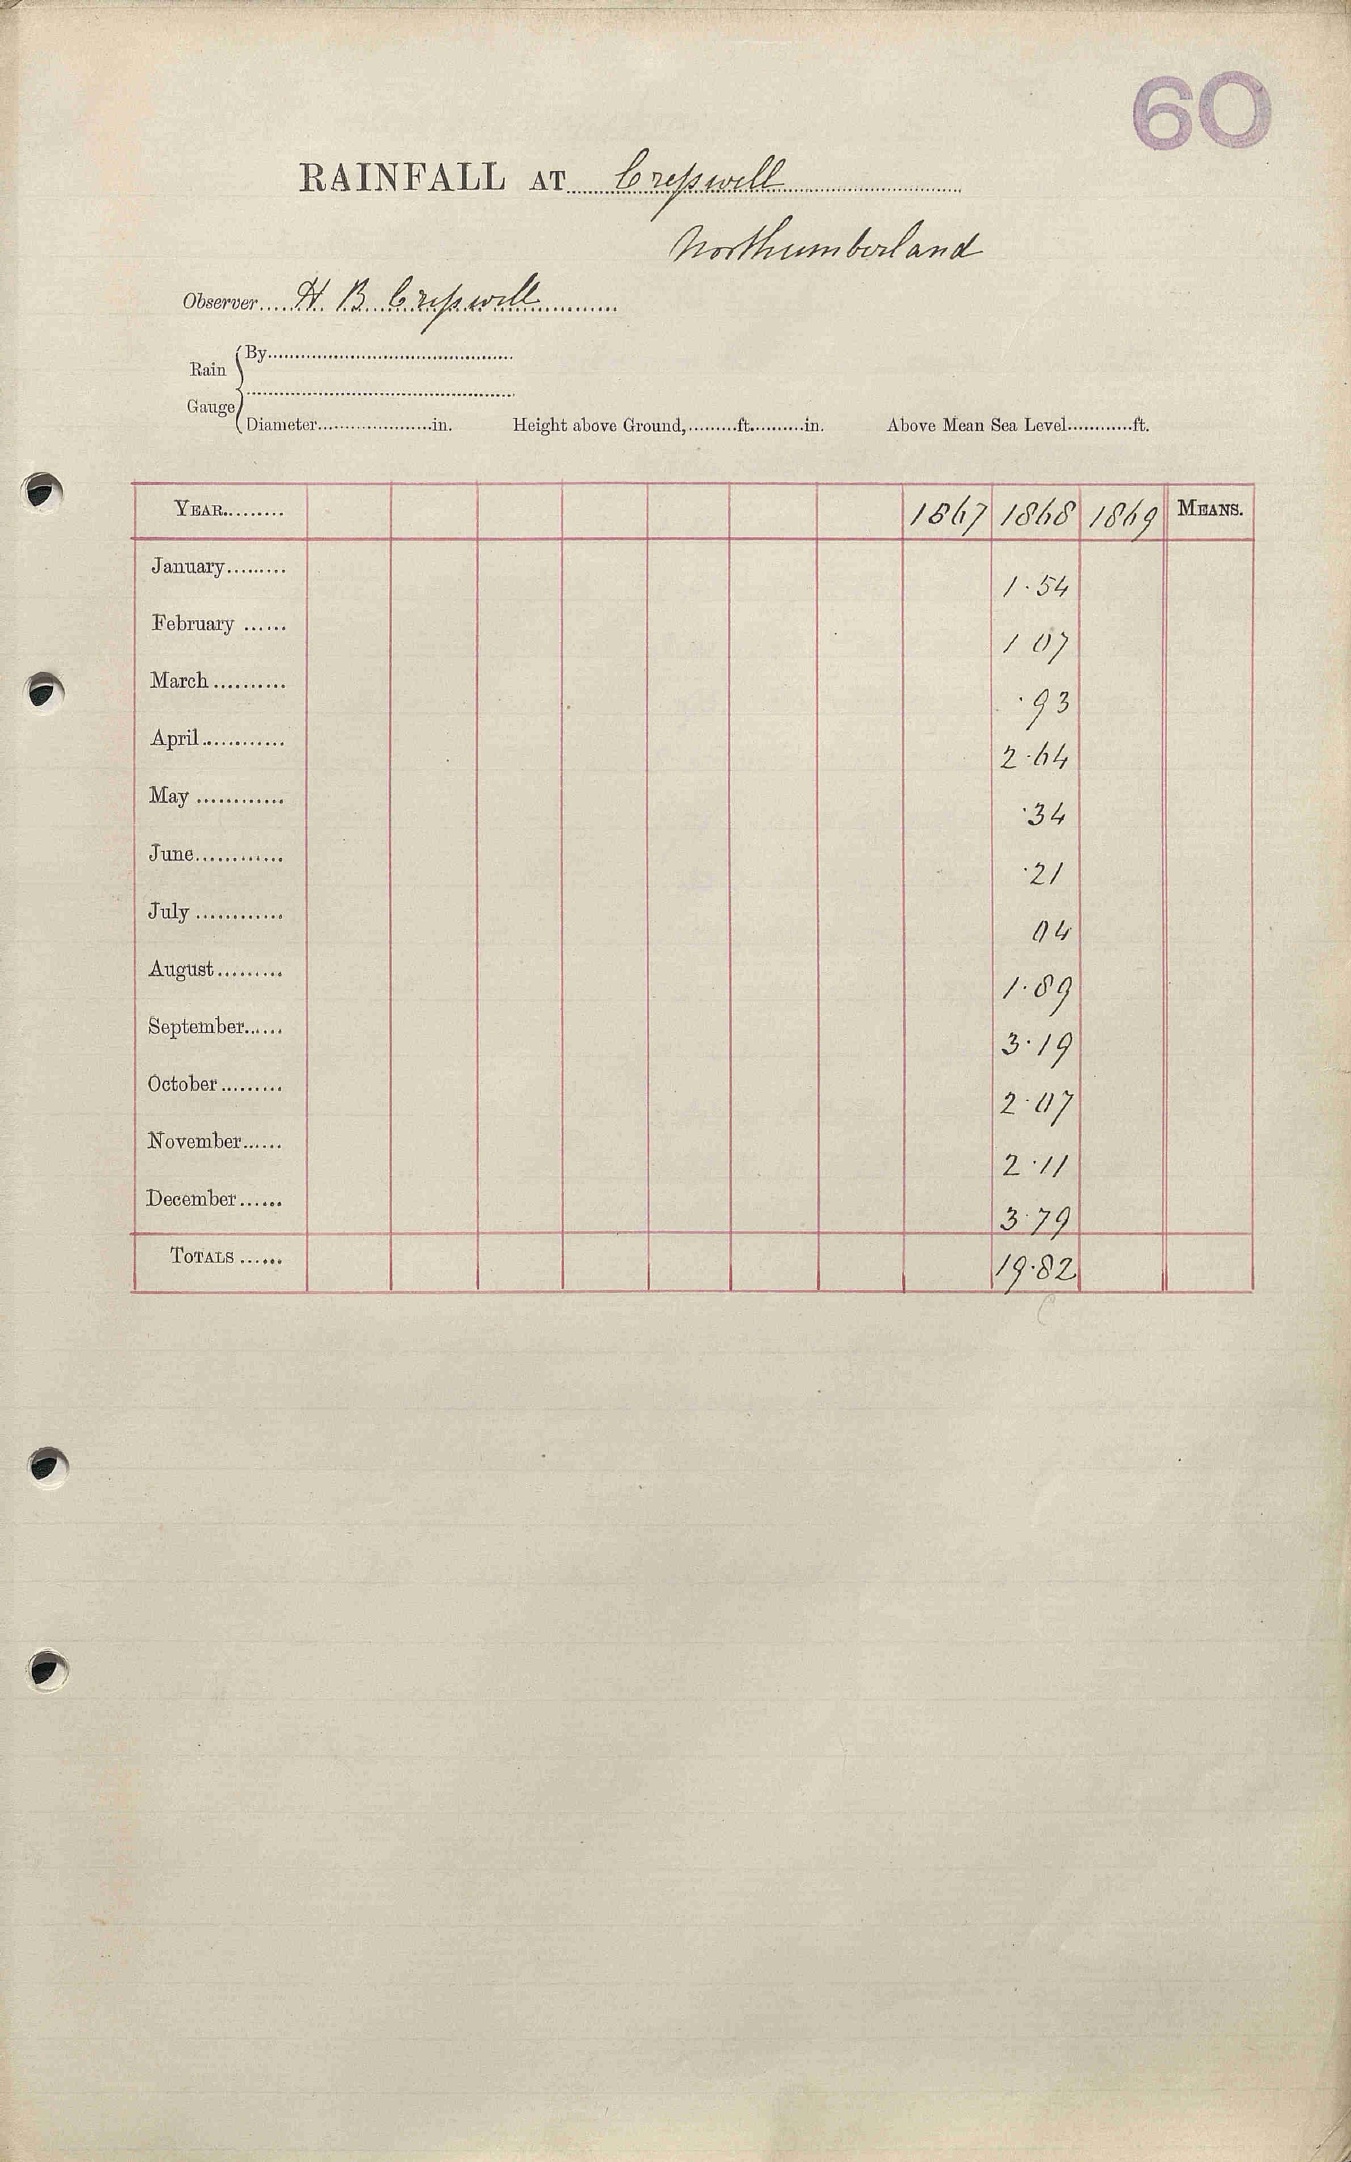 60
RAINFALL AT Creſswell
Northumberland
Observer H B Creſswell
Rain Gauge { By
Diameter in. Height above Ground, ft. in. Above Mean Sea Level ft.
YEAR 1867 1868 1869 MEANS.
January 1.54
February 1 07
March .93
April 2.64
May .34
June .21
July 04
August 1.89
September 3.19
October 2.07
November 2.11
December 3.79
TOTALS 19.82
C